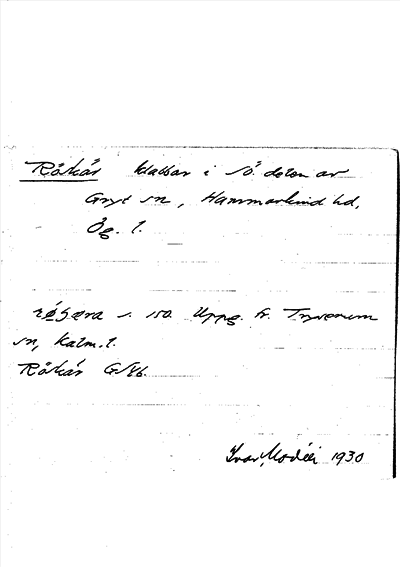 Rökär klabbar i sö. delen av
Gryt sn, Hammarkind hd,
Ög. l.
s. 150. Uppg. fr. Tryserum
sn, Kalm. l.
Rökär
Ivar Modéer 1930